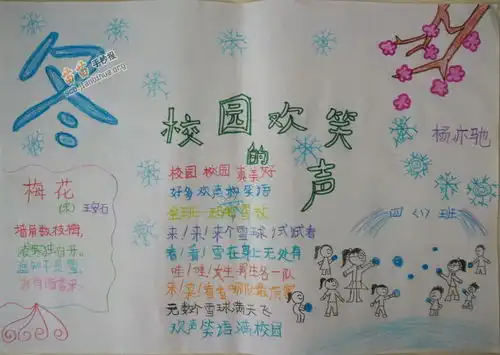 冬
校园欢笑的声
杨亦驰
四〈1〉班
梅花
(宋) 王安石
墙角数枝梅,
凌寒独自开。
遥知不是雪,
为有暗香来。
校园 校园 真美好
好多欢声和笑语
来!来!来个雪球试试看
看!看!雪在掌上无处有
哇!哇!女生男生各一队
无数个雪球满天飞
欢声笑语满校园